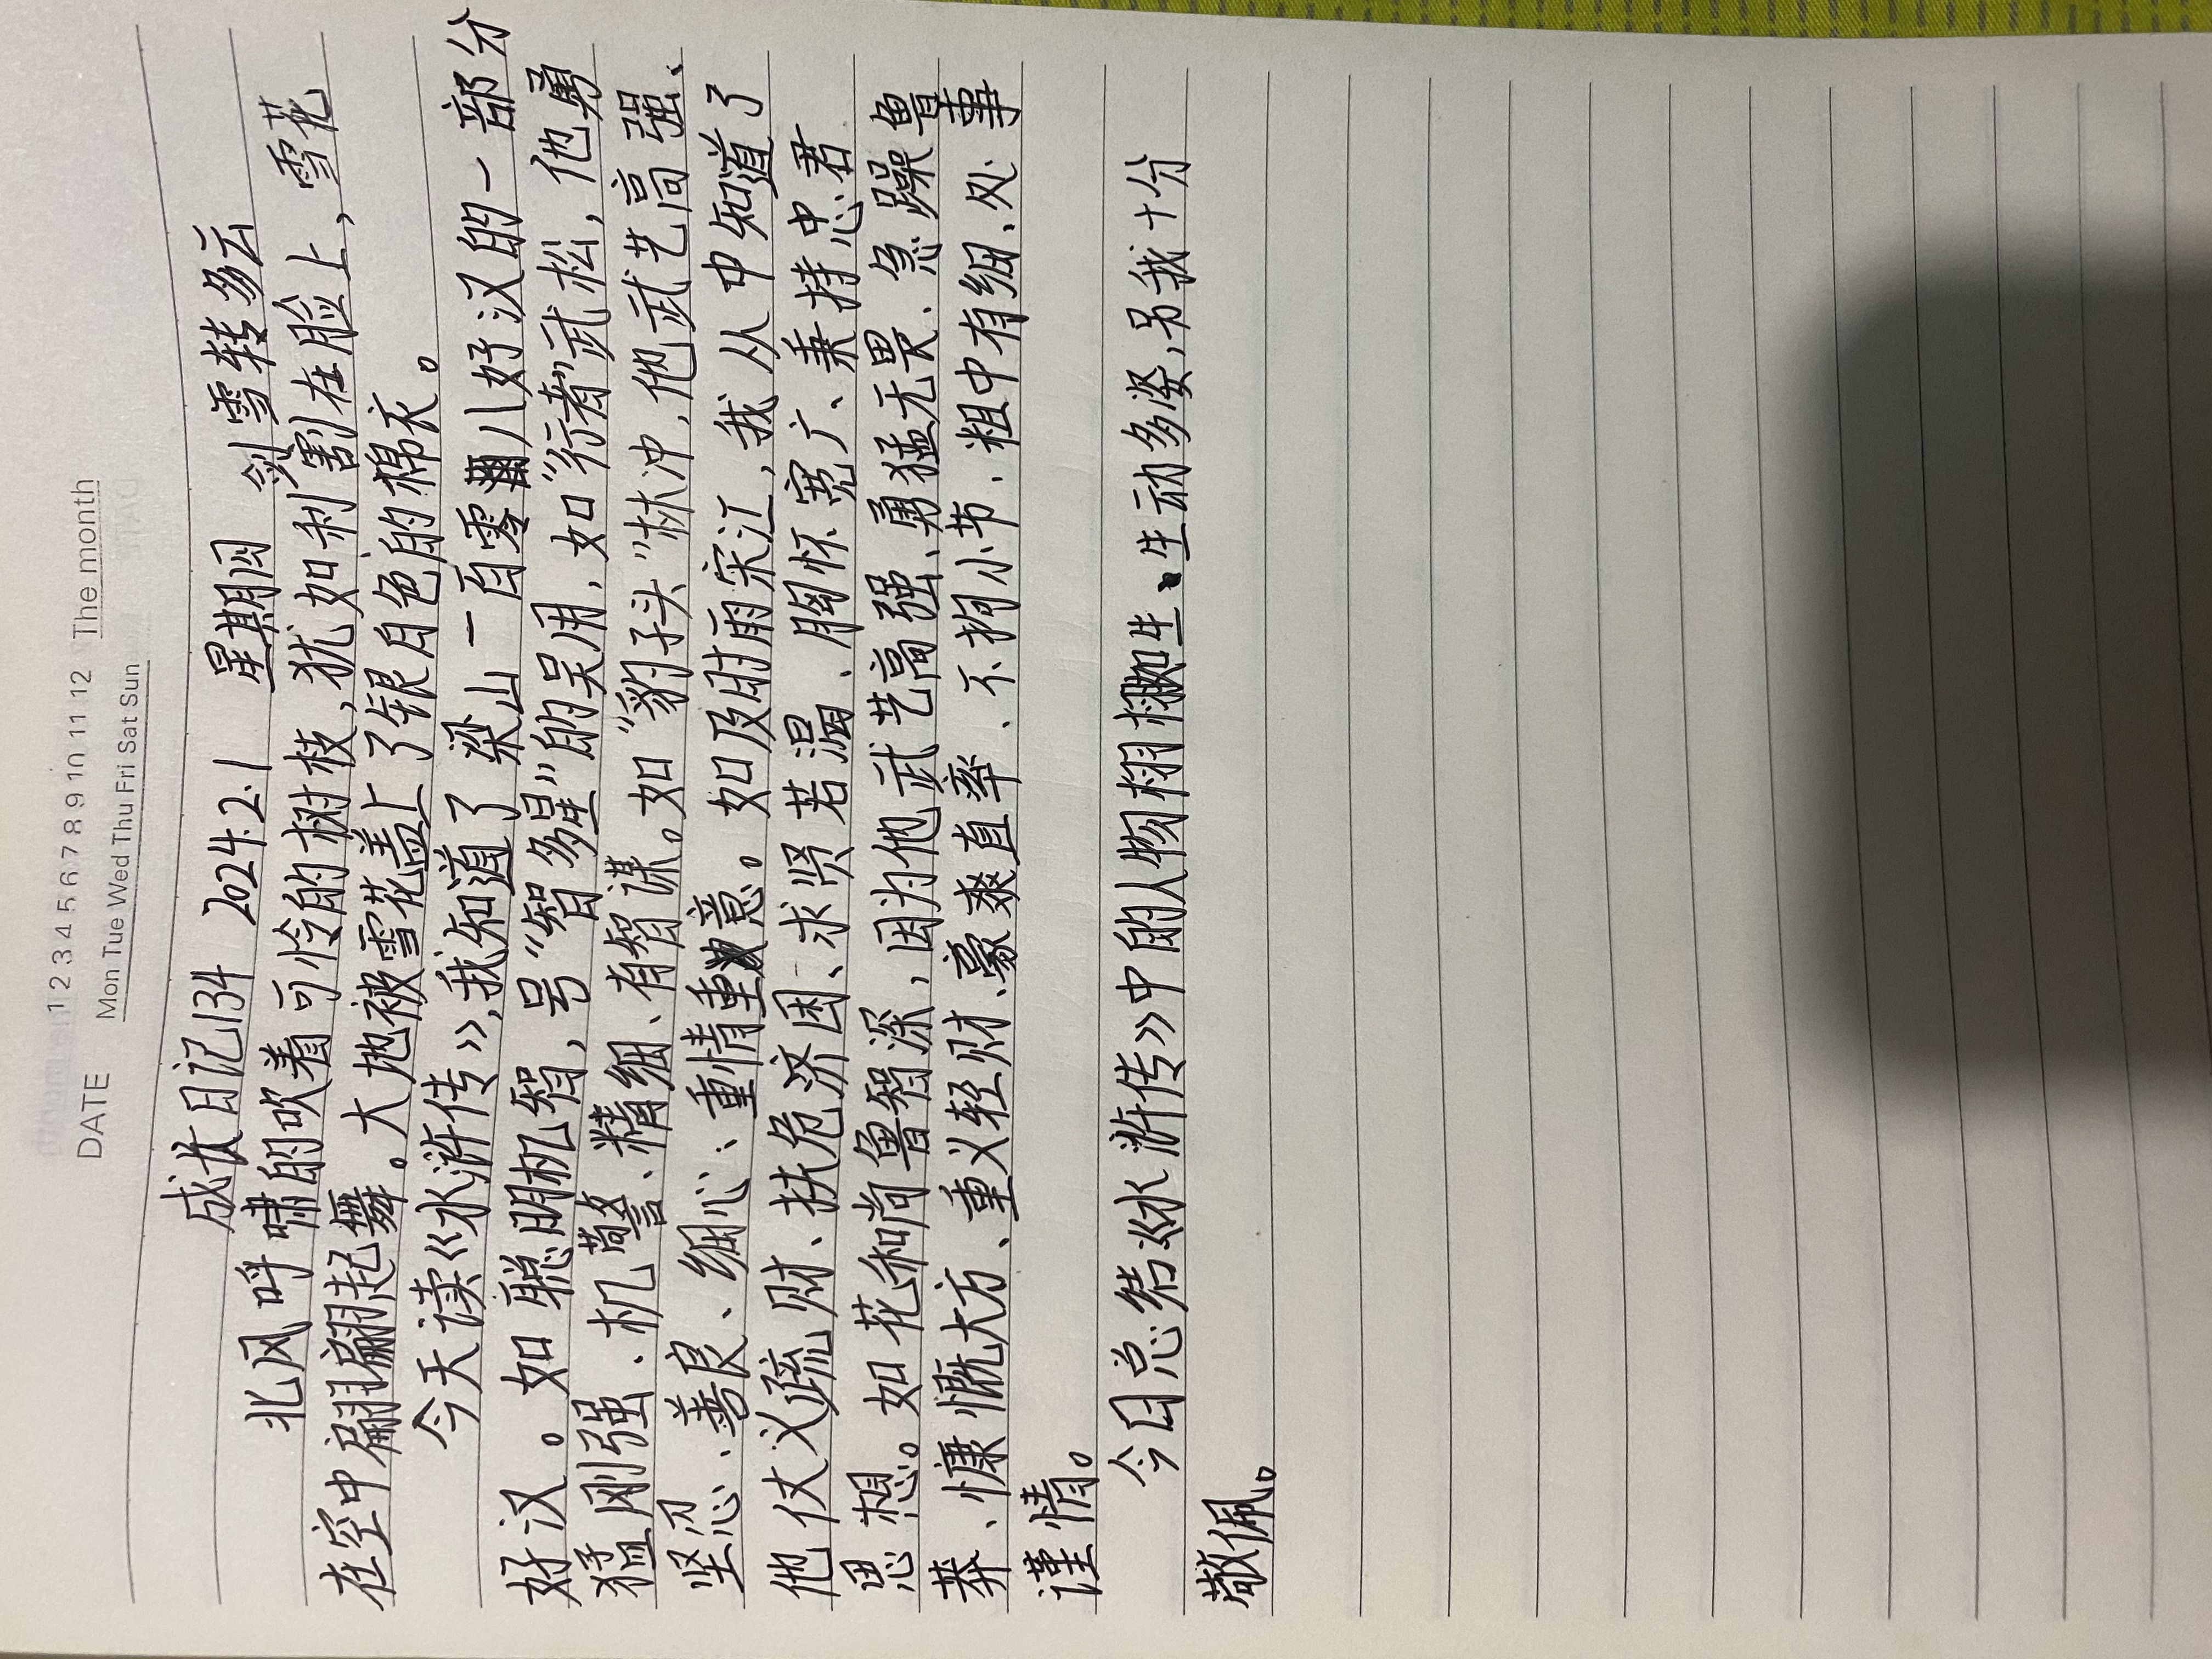 1 2 3 4 5 6 7 8 9 10 11 12 The month
DATE Mon Tue Wed Thu Fri Sat Sun
成长日记134 2024.2.1 星期四 雪转多云
北风呼啸的吹着可怜的树枝，犹如利剑割在脸上，雪花
在空中翩翩起舞。大地被雪花盖上了银白色的棉衣。
今天读《水浒传》，我知道了梁山一百零八好汉的一部分
好汉。如聪明机智，号“智多星”的吴用，如“行者”武松，他勇
猛刚强、机警、精细、有智谋。如“豹子头”林冲，他武艺高强、
坚忍、善良、细心、重情重意。如及时雨宋江，我从中知道了
他仗义疏财、扶危济困、求贤若渴、胸怀宽广、秉持忠君
思想。如花和尚鲁智深，因为他武艺高强、勇猛无畏、急躁鲁
莽、慷慨大方、重义轻财、豪爽直率、不拘小节、粗中有细、处事
谨慎。
今日总结《水浒传》中的人物栩栩如生、生动多姿，另我十分
敬佩。